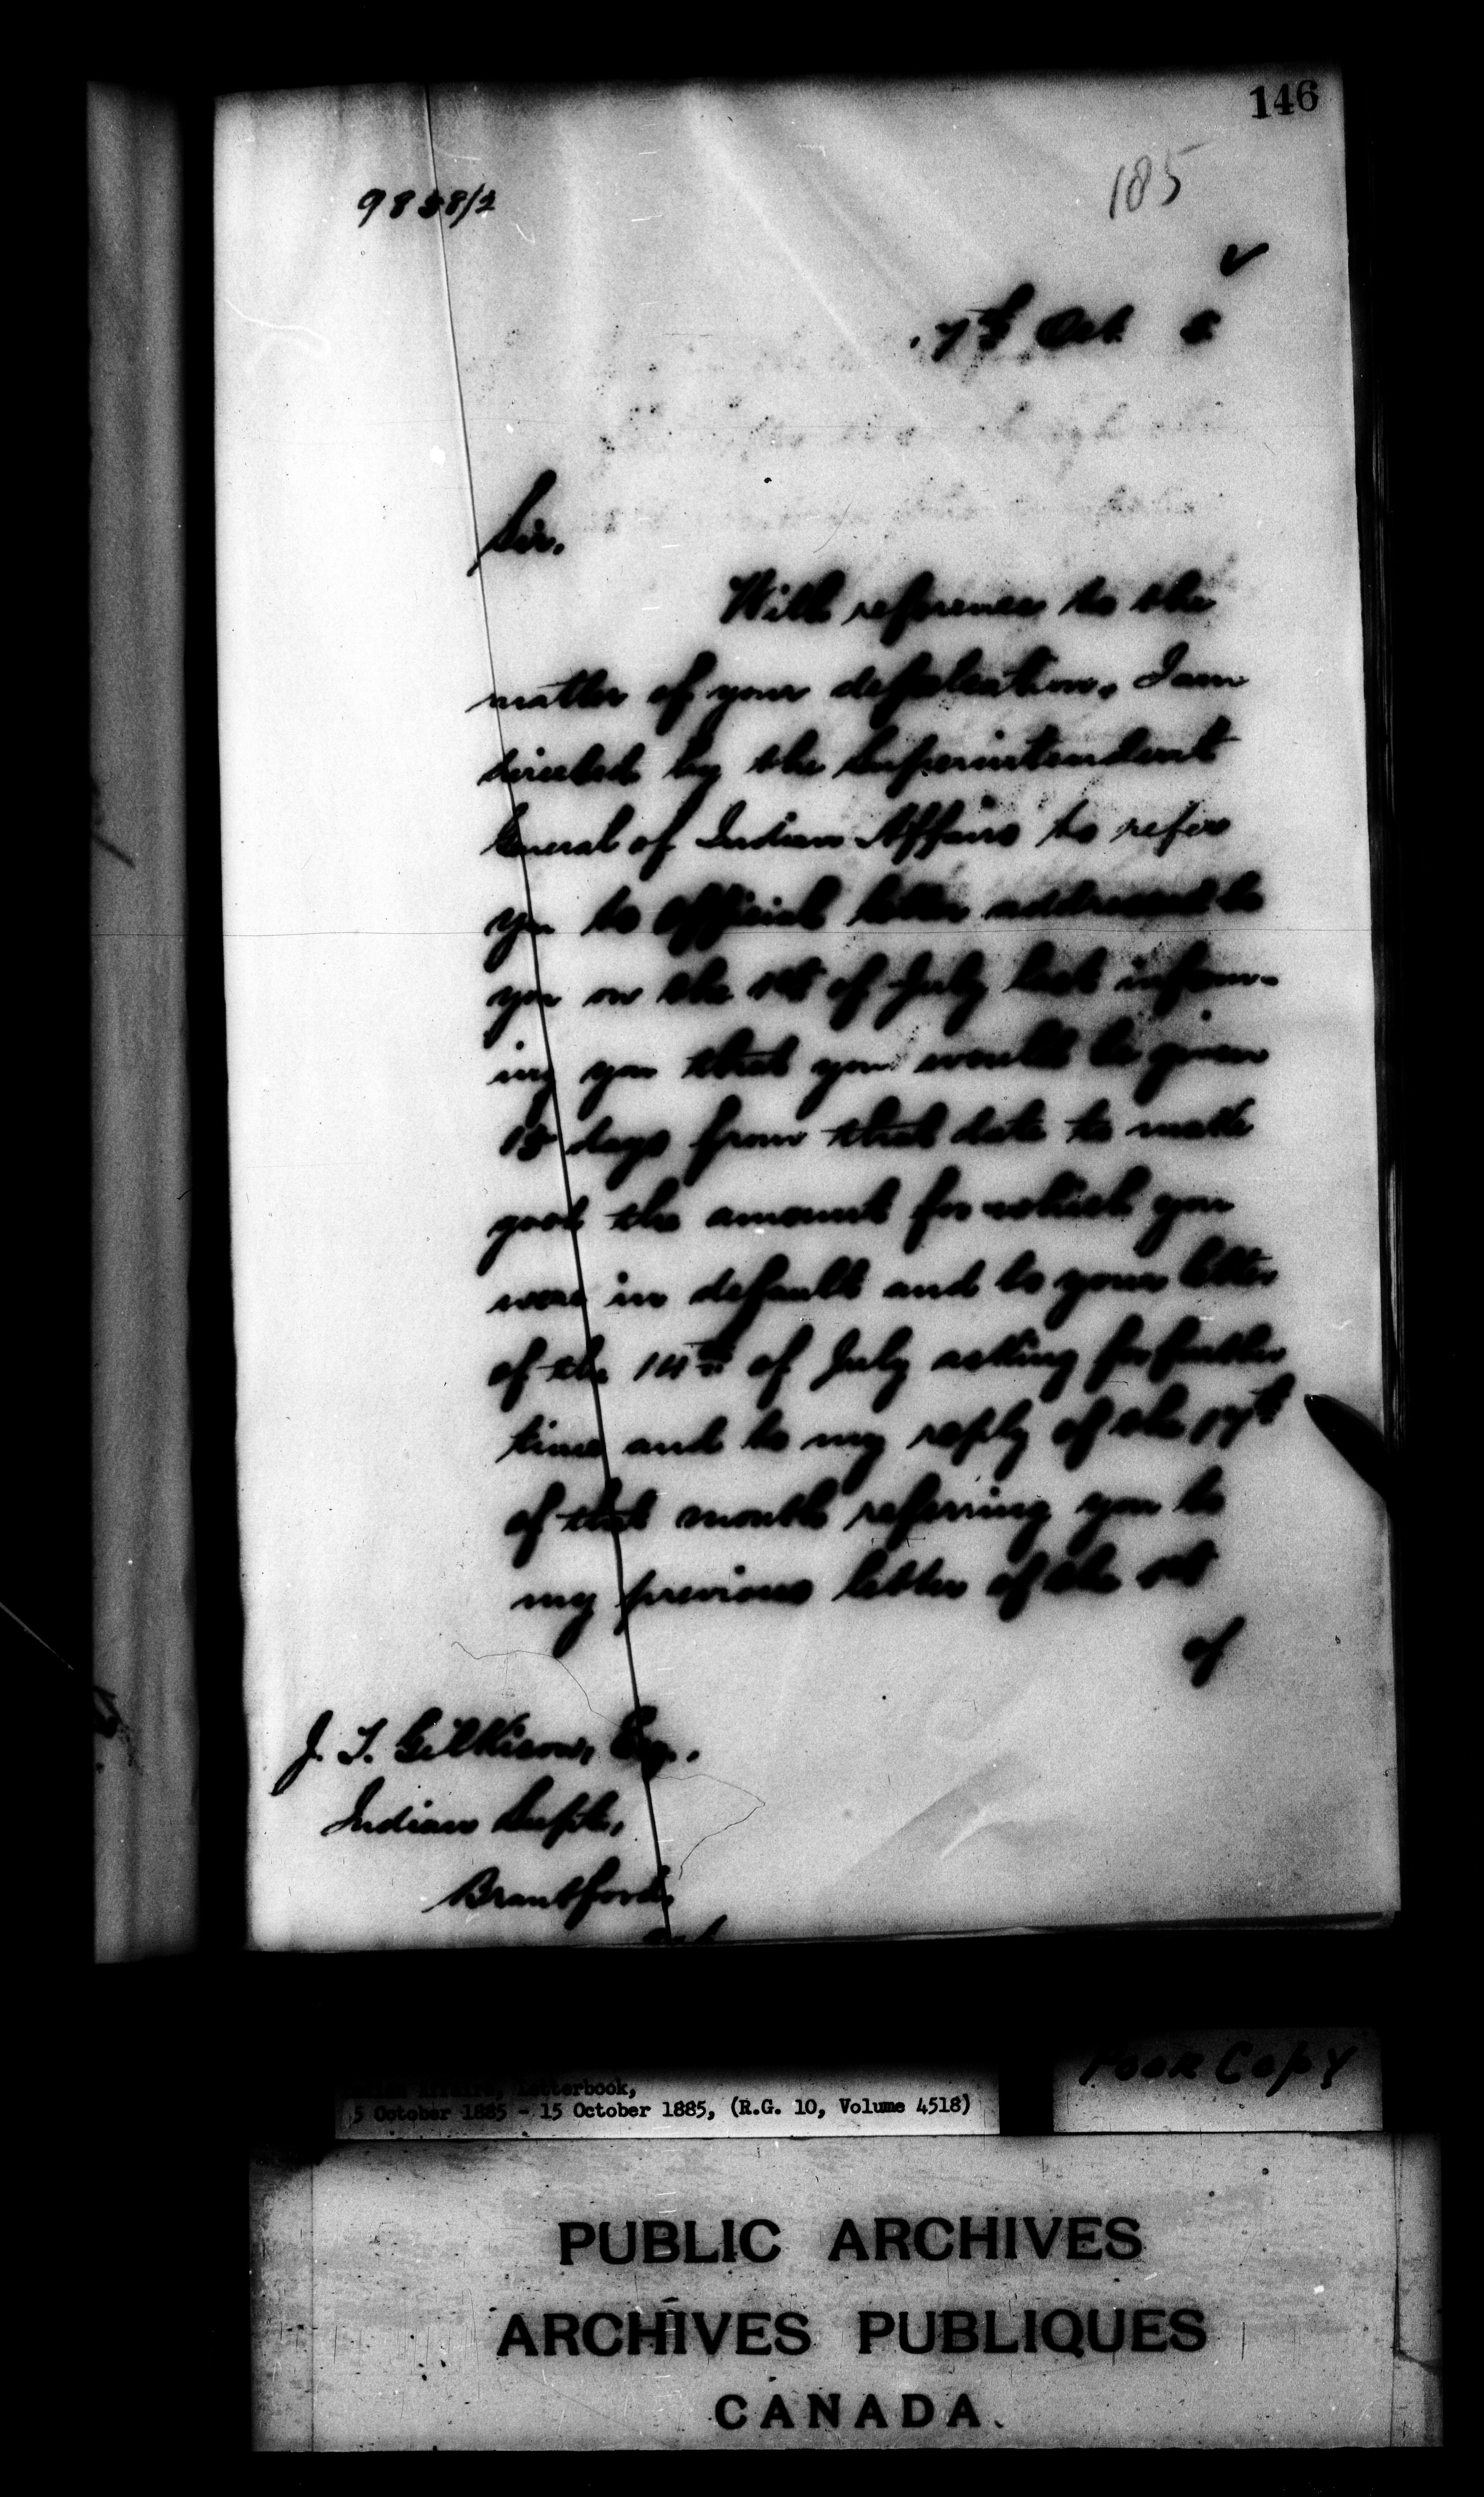 146
185
9838/2
7th Oct. 5
Sir,
With reference to the
matter of your defalcation, I am
directed by the Superintendent
General of Indian Affairs to refer
you to official letter addressed to
you on the 1st of July last inform-
ing you that you would be given
15 days from that date to make
good the amount for which you
were in default and to your letter
of the 14th of July asking for further
time and to my reply of the 17th
of that month referring you to
my previous letter of the 1st
of
J. T. Gilkison, Esq.
Indian Supt.,
Brantford,
Ont
Indian Affairs, Letterbook,
5 October 1885 - 15 October 1885, (R.G. 10, Volume 4518)
Poor Copy
PUBLIC ARCHIVES
ARCHIVES PUBLIQUES
CANADA